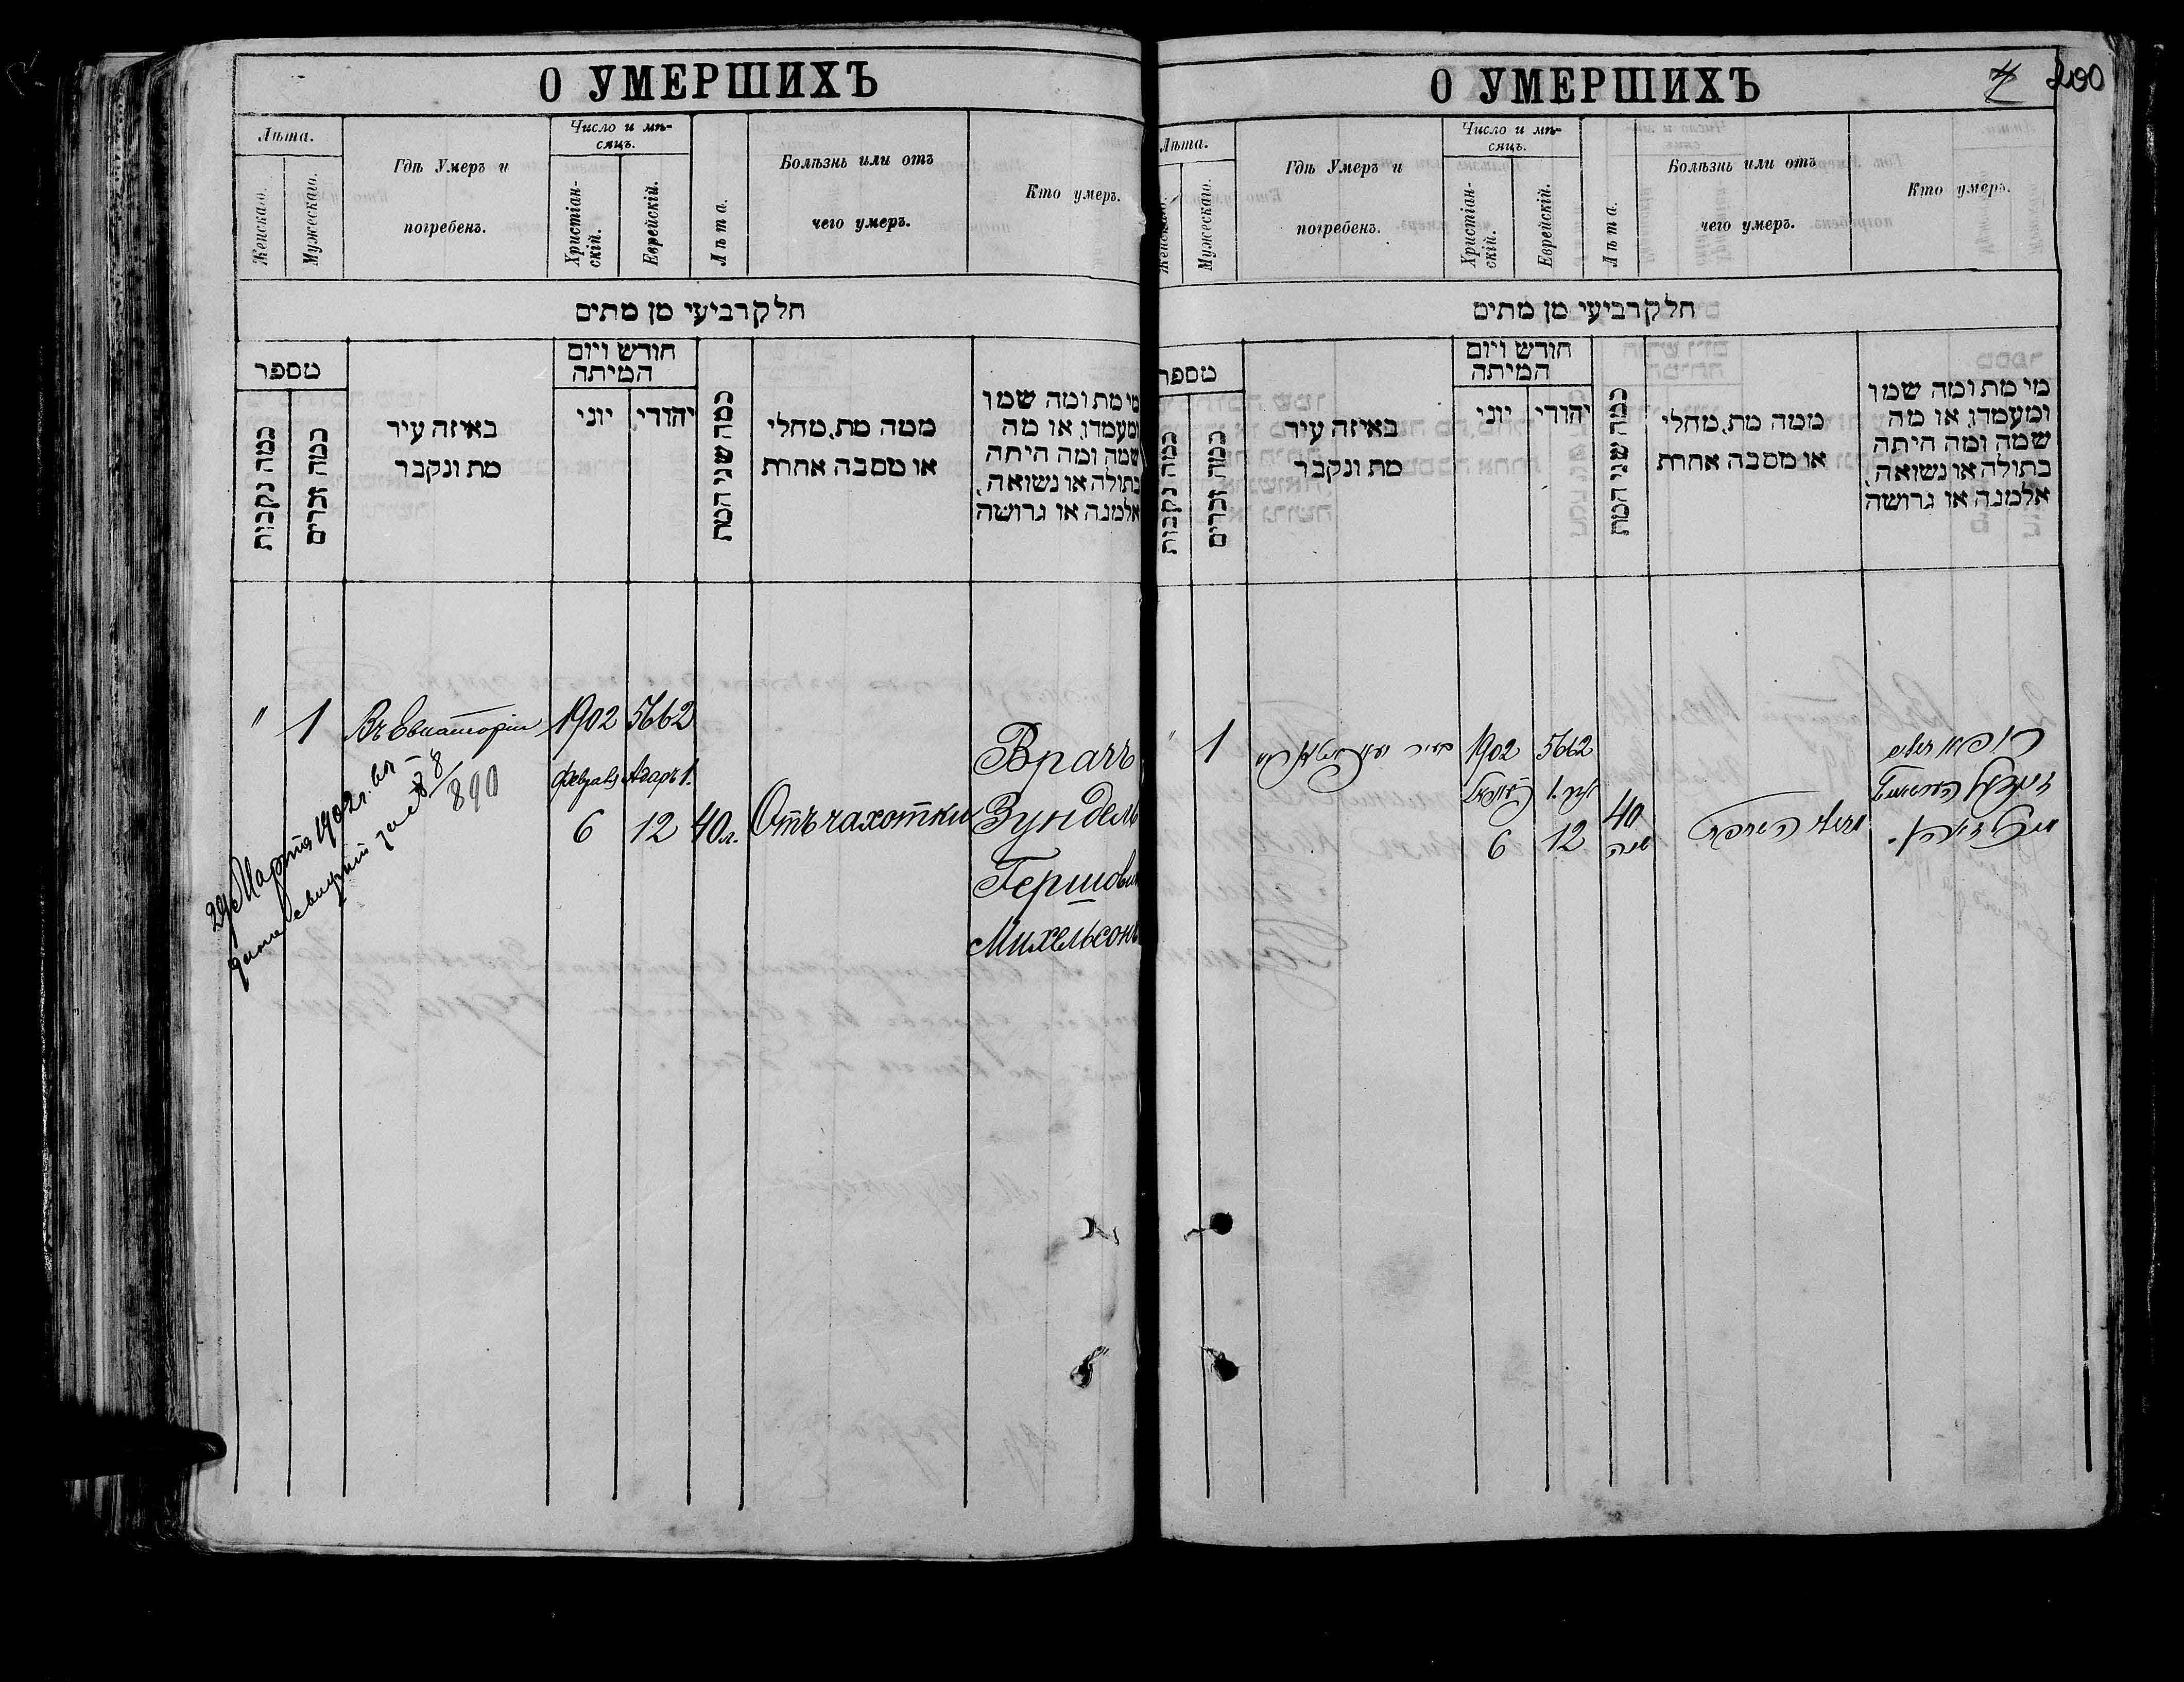 О УМЕРШИХЪ
Лѣта.
Женскаго.
Мужескаго.
Гдѣ Умеръ и
погребенъ.
Число и мѣ-
сяцъ.
Христіан-
скій.
Еврейскій.
Лѣта.
Болѣзнь или отъ
чего умеръ.
Кто умеръ.
חלק רביעי מן מתים
מספר
כמה נקבות
כמה זכרים
באיזה עיר
מת ונקבר
חודש ויום
המיתה
יוני
יהודי
כמה שני המת
ממה מת, מחלי
או מסבה אחרת
מי מת ומה שמו
ומעמדו, או מה
שמה ומה היתה
בתולה או נשואה,
אלמנה או גרושה
" 1 Въ Евпаторіи 1902 5662
Февраля Адаръ 1.
6 12 40л. Отъ чахотки
Врачъ
Зундель
Гершович
Михельсонъ
29 Марта 1902 г.
890
О УМЕРШИХЪ
200
Лѣта.
Женскаго.
Мужескаго.
Гдѣ Умеръ и
погребенъ.
Число и мѣ-
сяцъ.
Христіан-
скій.
Еврейскій.
Лѣта.
Болѣзнь или отъ
чего умеръ.
Кто умеръ.
חלק רביעי מן מתים
מספר
כמה נקבות
כמה זכרים
באיזה עיר
מת ונקבר
חודש ויום
המיתה
יוני
יהודי
כמה שני המת
ממה מת, מחלי
או מסבה אחרת
מי מת ומה שמו
ומעמדו, או מה
שמה ומה היתה
בתולה או נשואה,
אלמנה או גרושה
" 1 בעיר 1902 5662
אדר 1.
6 12 40
שנה